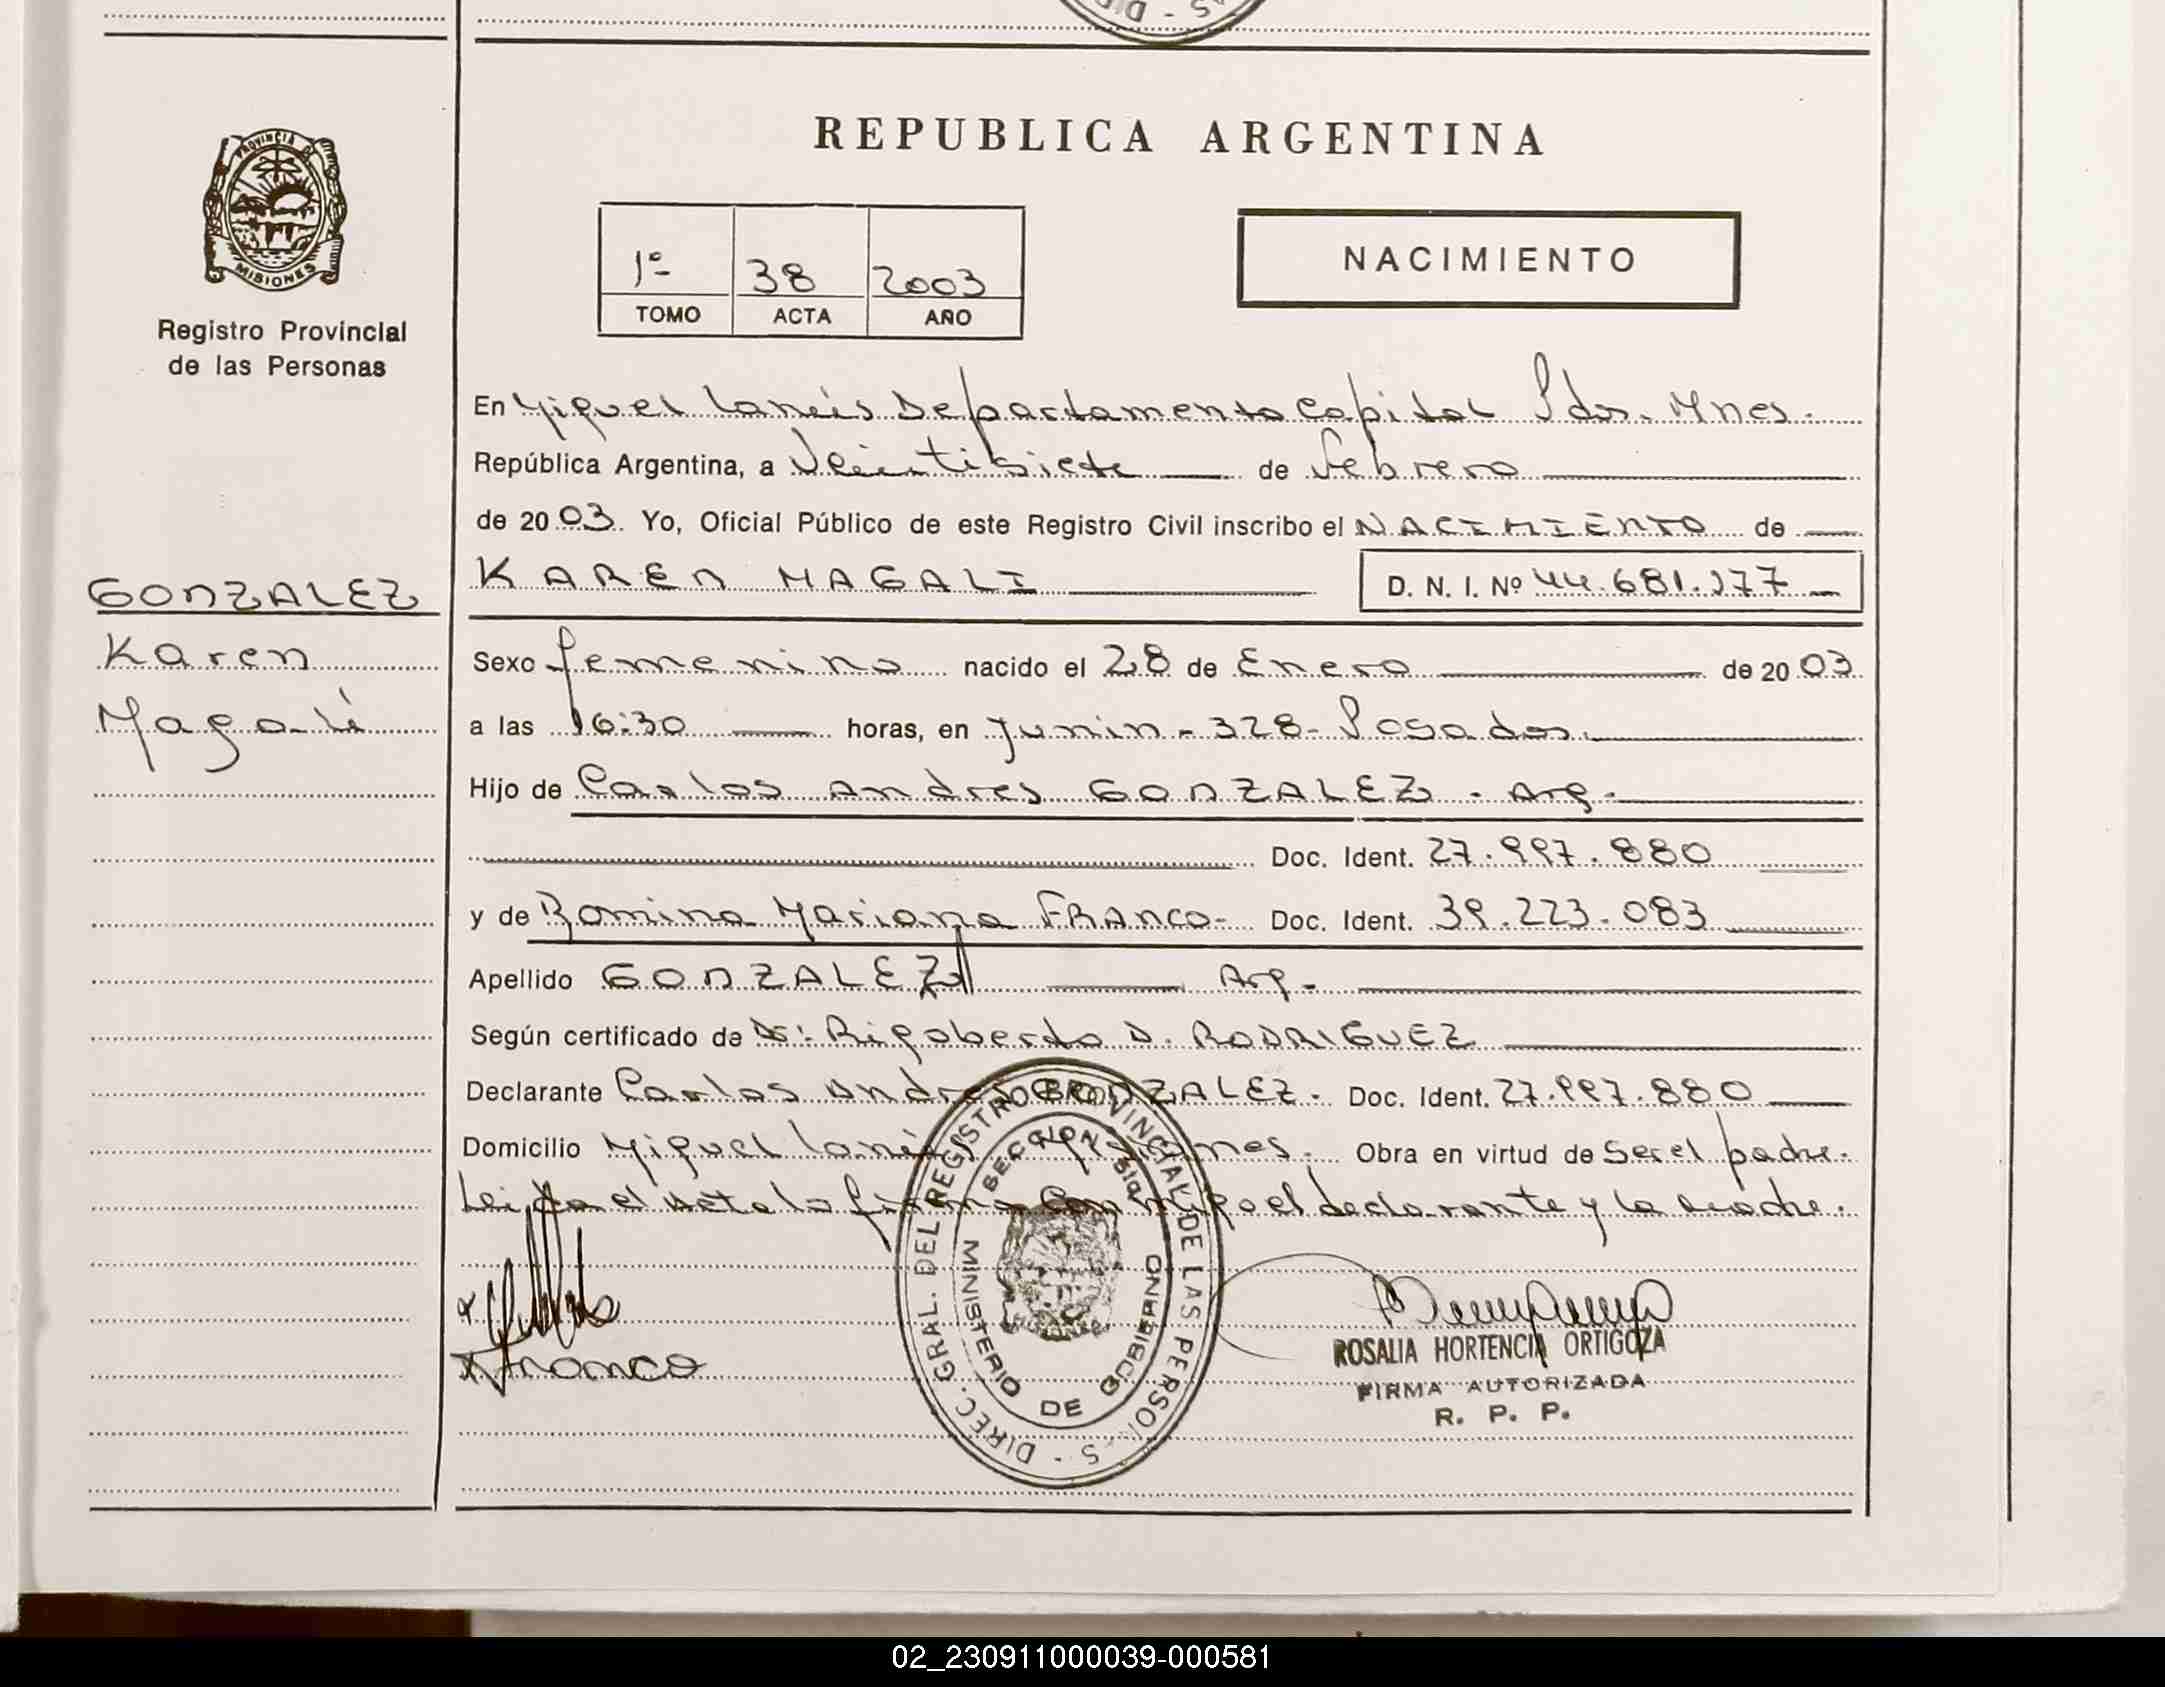 REPUBLICA ARGENTINA
PROVINCIA DE MISIONES
Registro Provincial
de las Personas
1º 38 2003
TOMO ACTA AÑO
NACIMIENTO
En Miguel Lanús Departamento Capital Pdas. Mnes.
República Argentina, a Veintisiete de Febrero
de 2003. Yo, Oficial Público de este Registro Civil inscribo el NACIMIENTO de
KAREN MAGALI D. N. I. Nº 44.681.177
GONZALEZ
Karen
Magalí
Sexo femenino nacido el 28 de Enero de 2003
a las 16:30 horas, en Junin - 328 - Posadas.
Hijo de Carlos Andres GONZALEZ - Arg.
Doc. Ident. 27.997.880
y de Romina Mariana FRANCO- Doc. Ident. 39.223.083
Apellido GONZALEZ Arg.
Según certificado de Dr: Rigoberto D. RODRIGUEZ
Declarante Carlos Andres GONZALEZ. Doc. Ident. 27.997.880
Domicilio Miguel Lanús Mnes. Obra en virtud de ser el padre.
Leída el Acta la firma conmigo el declarante y la madre.
Franco
DIREC. GRAL. DEL REGISTRO PROVINCIAL DE LAS PERSONAS
SECCION 5ta
MINISTERIO DE GOBIERNO
ROSALIA HORTENCIA ORTIGOZA
FIRMA AUTORIZADA
R. P. P.
02_230911000039-000581